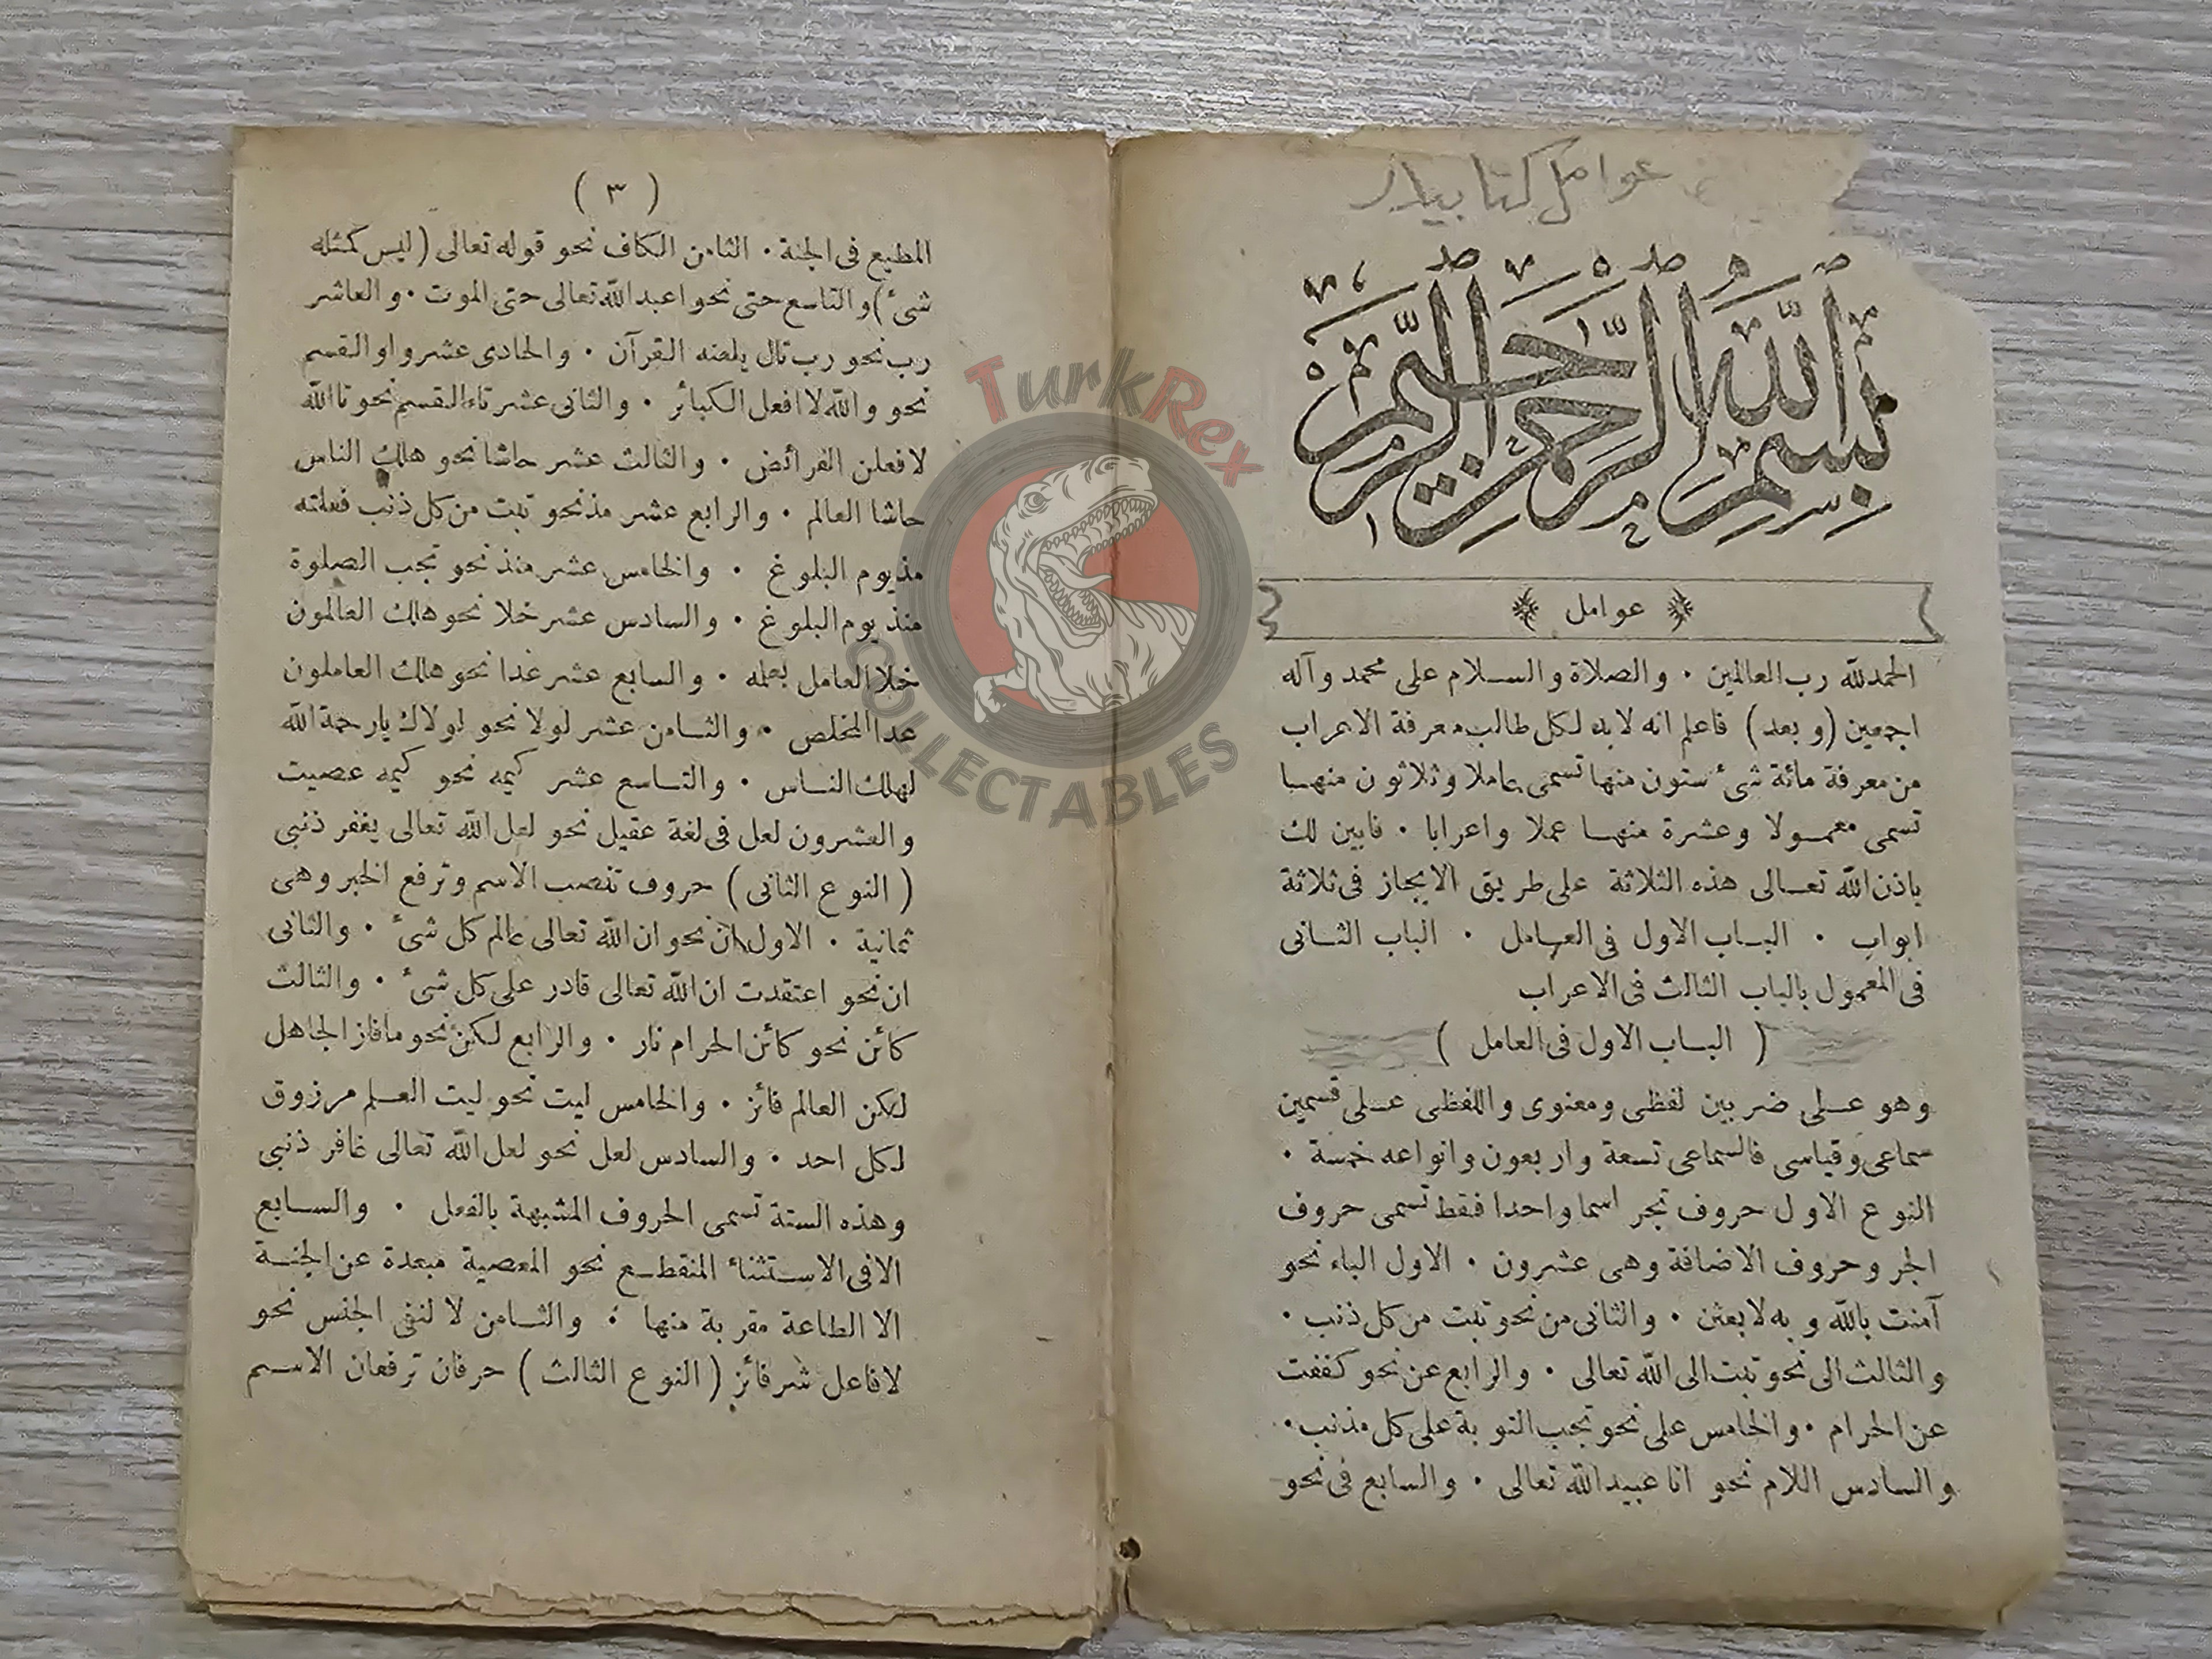 عوامل كتابيدر
بسم الله الرحمن الرحيم
عوامل
الحمدلله رب العالمين ٠ والصلاة والسلام على محمد وآله
اجمعين (وبعد) فاعلم انه لابد لكل طالب معرفة الاعراب
من معرفة مائة شئ ستون منها تسمى عاملا وثلاثون منها
تسمى معمولا وعشرة منها عملا واعرابا ٠ فابين لك
باذن الله تعالى هذه الثلاثة على طريق الايجاز فى ثلاثة
ابواب ٠ الباب الاول فى العامل ٠ الباب الثانى
فى المعمول بالباب الثالث فى الاعراب
( الباب الاول فى العامل )
وهو على ضربين لفظى ومعنوى واللفظى على قسمين
سماعى وقياسى فالسماعى تسعة واربعون وانواعه خمسة ٠
النوع الاول حروف تجر اسما واحدا فقط تسمى حروف
الجر وحروف الاضافة وهى عشرون ٠ الاول الباء نحو
آمنت بالله وبه لابعثن ٠ والثانى من نحو تبت من كل ذنب ٠
والثالث الى نحو تبت الى الله تعالى ٠ والرابع عن نحو كففت
عن الحرام ٠ والخامس على نحو تجب التوبة على كل مذنب ٠
والسادس اللام نحو انا عبيد الله تعالى ٠ والسابع فى نحو
( ٣ )
المطيع فى الجنة ٠ الثامن الكاف نحو قوله تعالى (ليس كمثله
شئ) والتاسع حتى نحو اعبد الله تعالى حتى الموت ٠ والعاشر
رب نحو رب تال يلعنه القرآن ٠ والحادى عشر واو القسم
نحو والله لا افعل الكبائر ٠ والثانى عشر تاء القسم نحو تالله
لافعلن الفرائض ٠ والثالث عشر حاشا نحو هلك الناس
حاشا العالم ٠ والرابع عشر مذ نحو تبت من كل ذنب فعلته
مذ يوم البلوغ ٠ والخامس عشر منذ نحو تجب الصلوة
منذ يوم البلوغ ٠ والسادس عشر خلا نحو هلك العالمون
خلا العامل بعلمه ٠ والسابع عشر عدا نحو هلك العاملون
عدا المخلص ٠ والثامن عشر لولا نحو لولاك يا رحمة الله
لهلك الناس ٠ والتاسع عشر كيمه نحو كيمه عصيت
والعشرون لعل فى لغة عقيل نحو لعل الله تعالى يغفر ذنبى
( النوع الثانى ) حروف تنصب الاسم وترفع الخبر وهى
ثمانية ٠ الاول ان نحو ان الله تعالى عالم كل شئ ٠ والثانى
ان نحو اعتقدت ان الله تعالى قادر على كل شئ ٠ والثالث
كائن نحو كائن الحرام نار ٠ والرابع لكن نحو مافاز الجاهل
لكن العالم فائز ٠ والخامس ليت نحو ليت العلم مرزوق
لكل احد ٠ والسادس لعل نحو لعل الله تعالى غافر ذنبى
وهذه الستة تسمى الحروف المشبهة بالفعل ٠ والسابع
الا فى الاستثناء المنقطع نحو المعصية مبعدة عن الجنة
الا الطاعة مقربة منها ٠ والثامن لا لنفى الجنس نحو
لا فاعل شر فائز ( النوع الثالث ) حرفان ترفعان الاسم
TurkRex
COLLECTABLES